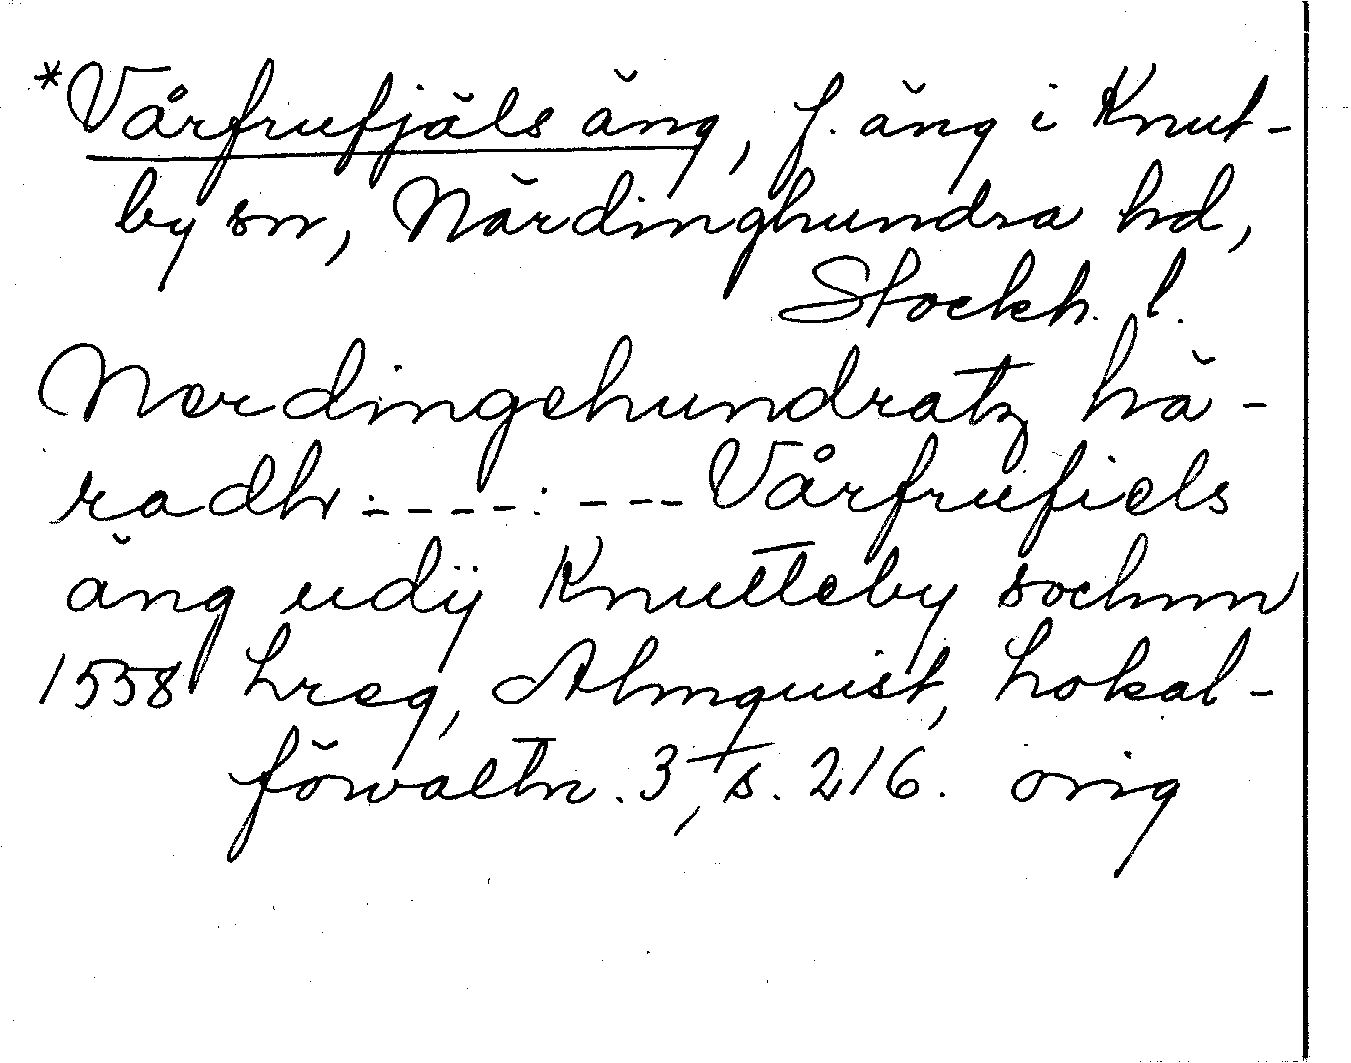 *Vårfrufjäls äng, f. äng i Knut-
by sn, Närdinghundra hd,
Stockh. l.
Nerdingehundratz hä-
radh: - - - -: - - - Vårfrufiels
äng udij Knutteby sochnn
1558 hreg, Almquist, Lokal-
förvaltn. 3, s. 216. orig